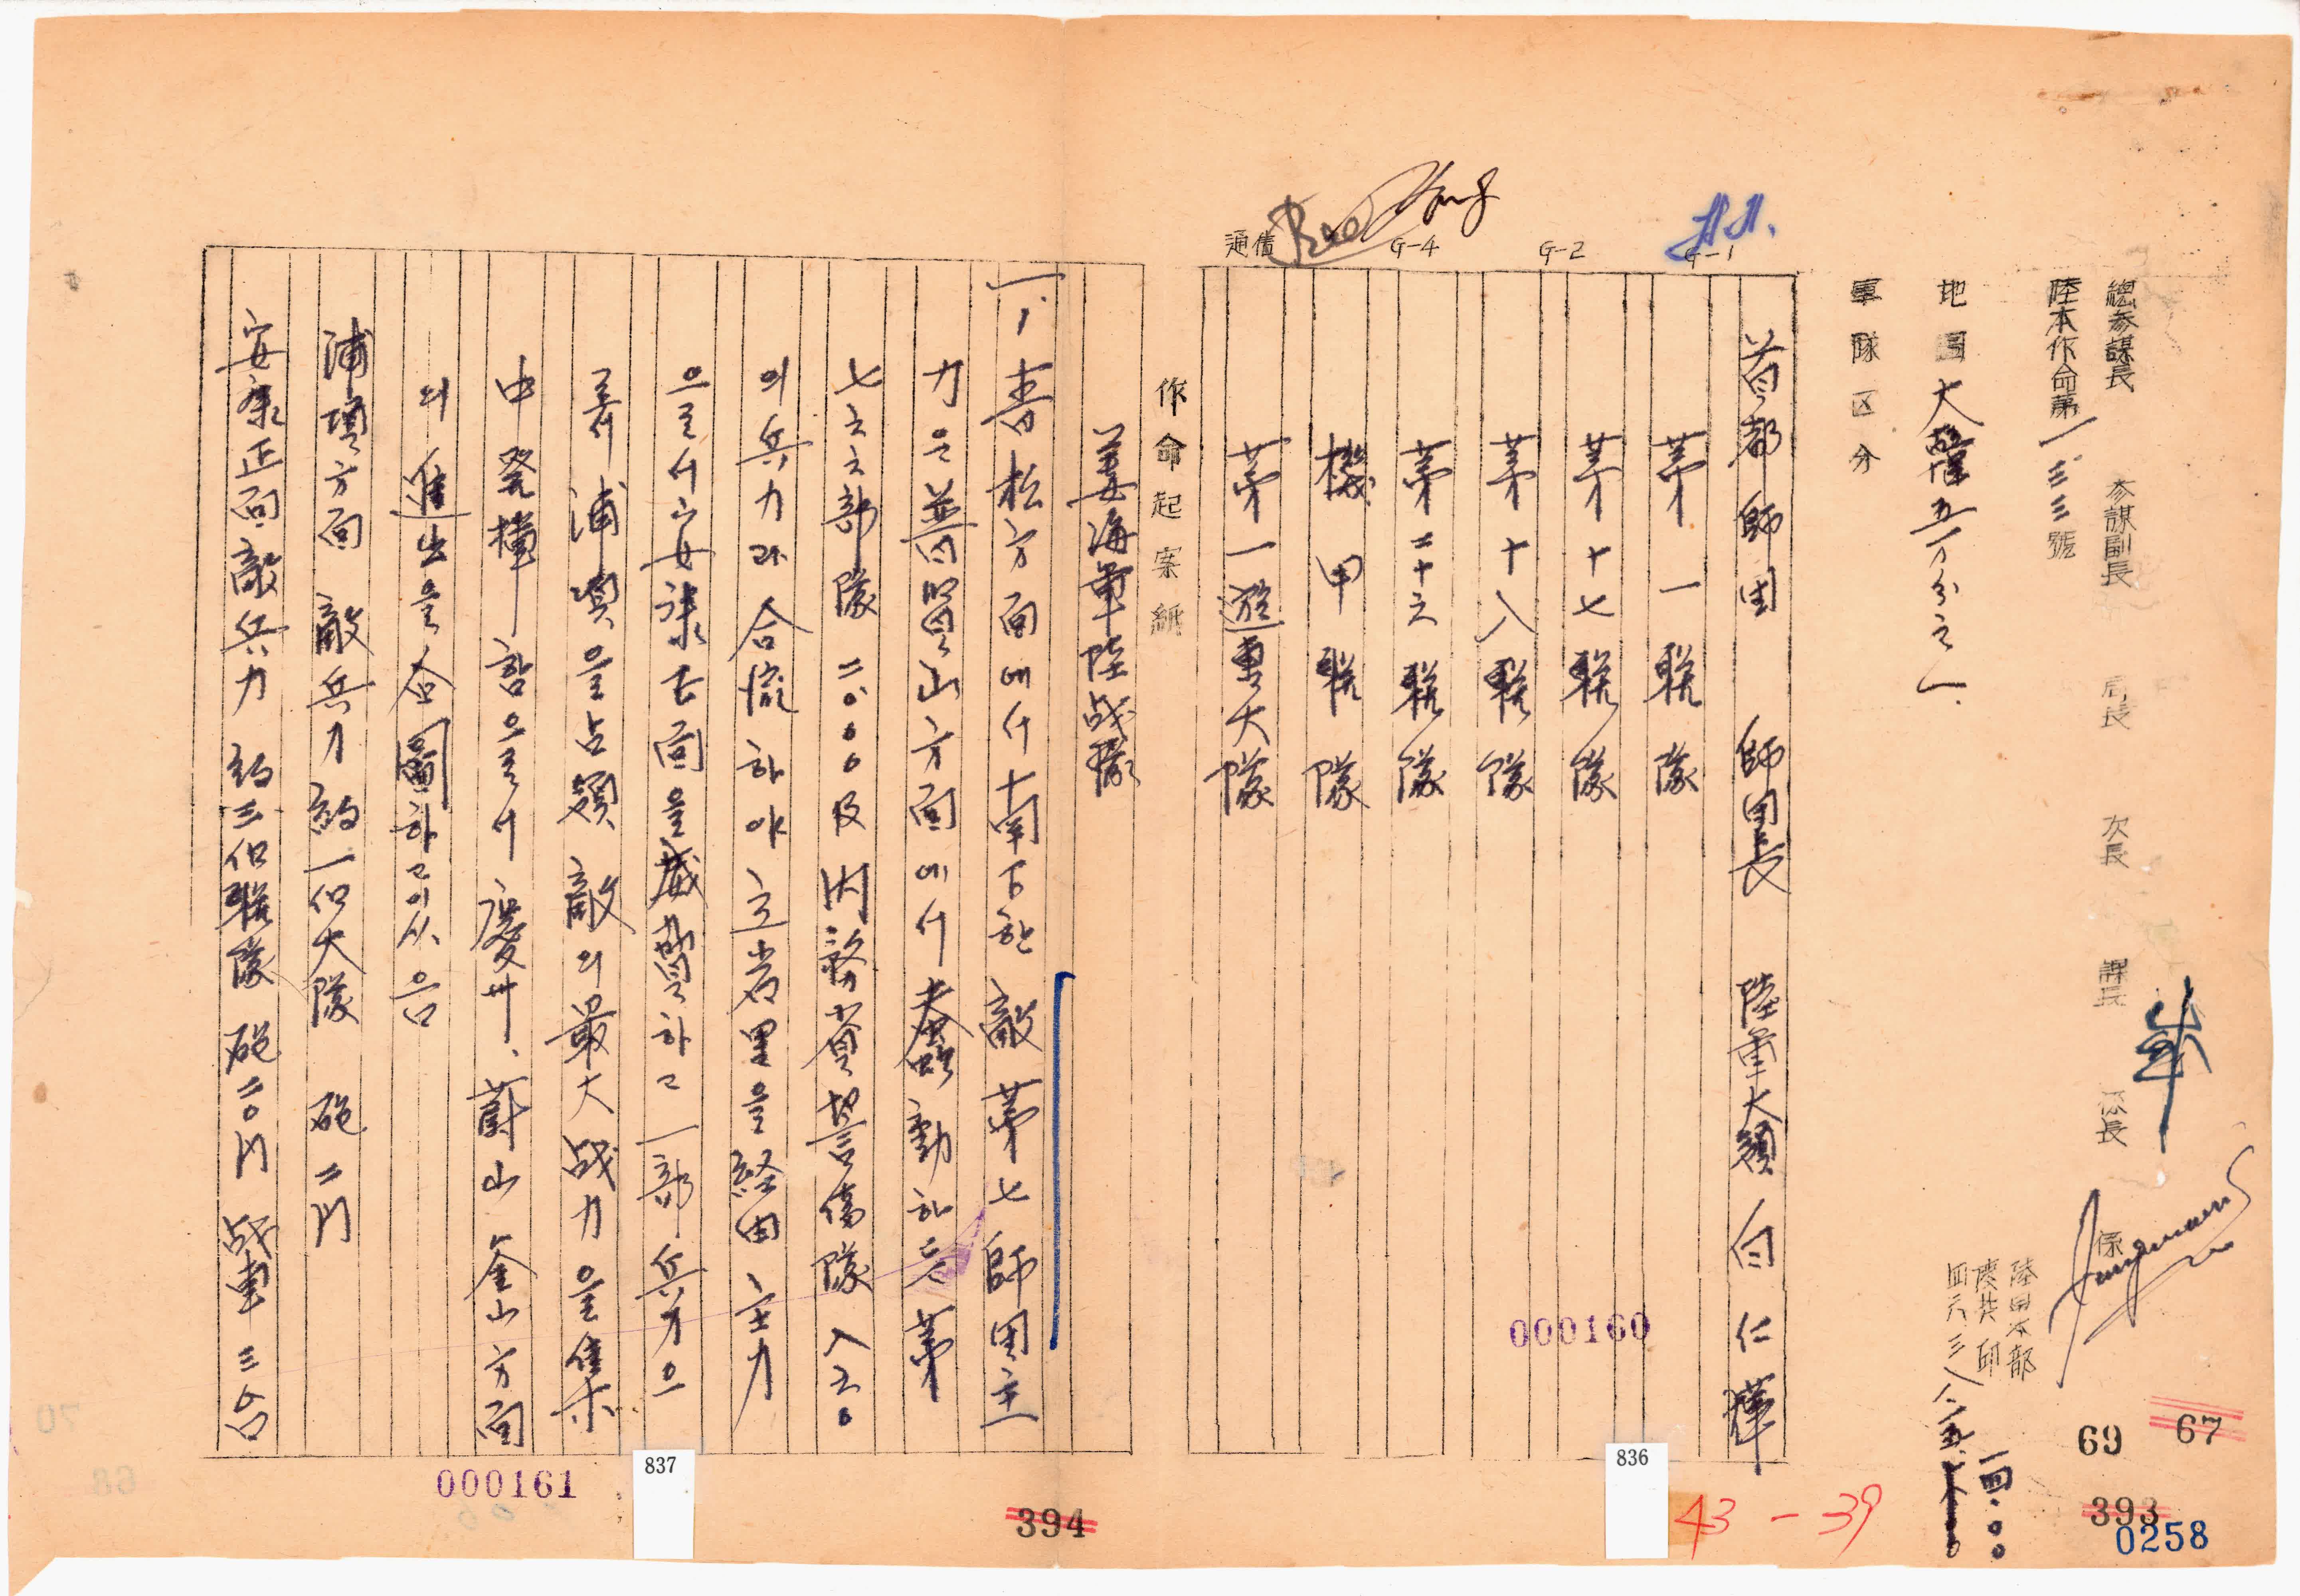 總參謀長 參謀副長 局長 次長 課長 係長 係
陸本作命第一三三號
陸軍本部
四二八三、八、一五、
一四・〇〇
地圖 大韓五万分之一
軍隊区分
G-1
G-2
G-4
通信
首都師団 師団長 陸軍大領 白仁燁
第一聯隊
第十七聯隊
第十八聯隊
第二十六聯隊
機甲聯隊
第一遊車大隊
作命起案紙
姜海軍陸战隊
一、青松方面에서 南下한 敵第七師団主
力은 普賢山方面에서 蠢動하든 第
七六六部隊 二〇〇〇 及 内務省警備隊 八五〇
의 兵力과 合流하야 立岩里을 経由 主力
으로서 安康正面을 威脅하고 一部兵力으
로써 浦項을 占領 敵의 最大战力을 集
中発揮함으로써 慶州、蔚山 釜山方面
의 進出을 企圖하고 이씀
浦項方面 敵兵力 約一個大隊 砲二門
安康正面 敵兵力 約三個聯隊 砲二〇門 战車三台
000160
000161
836
837
43-39
69
67
393
394
0258